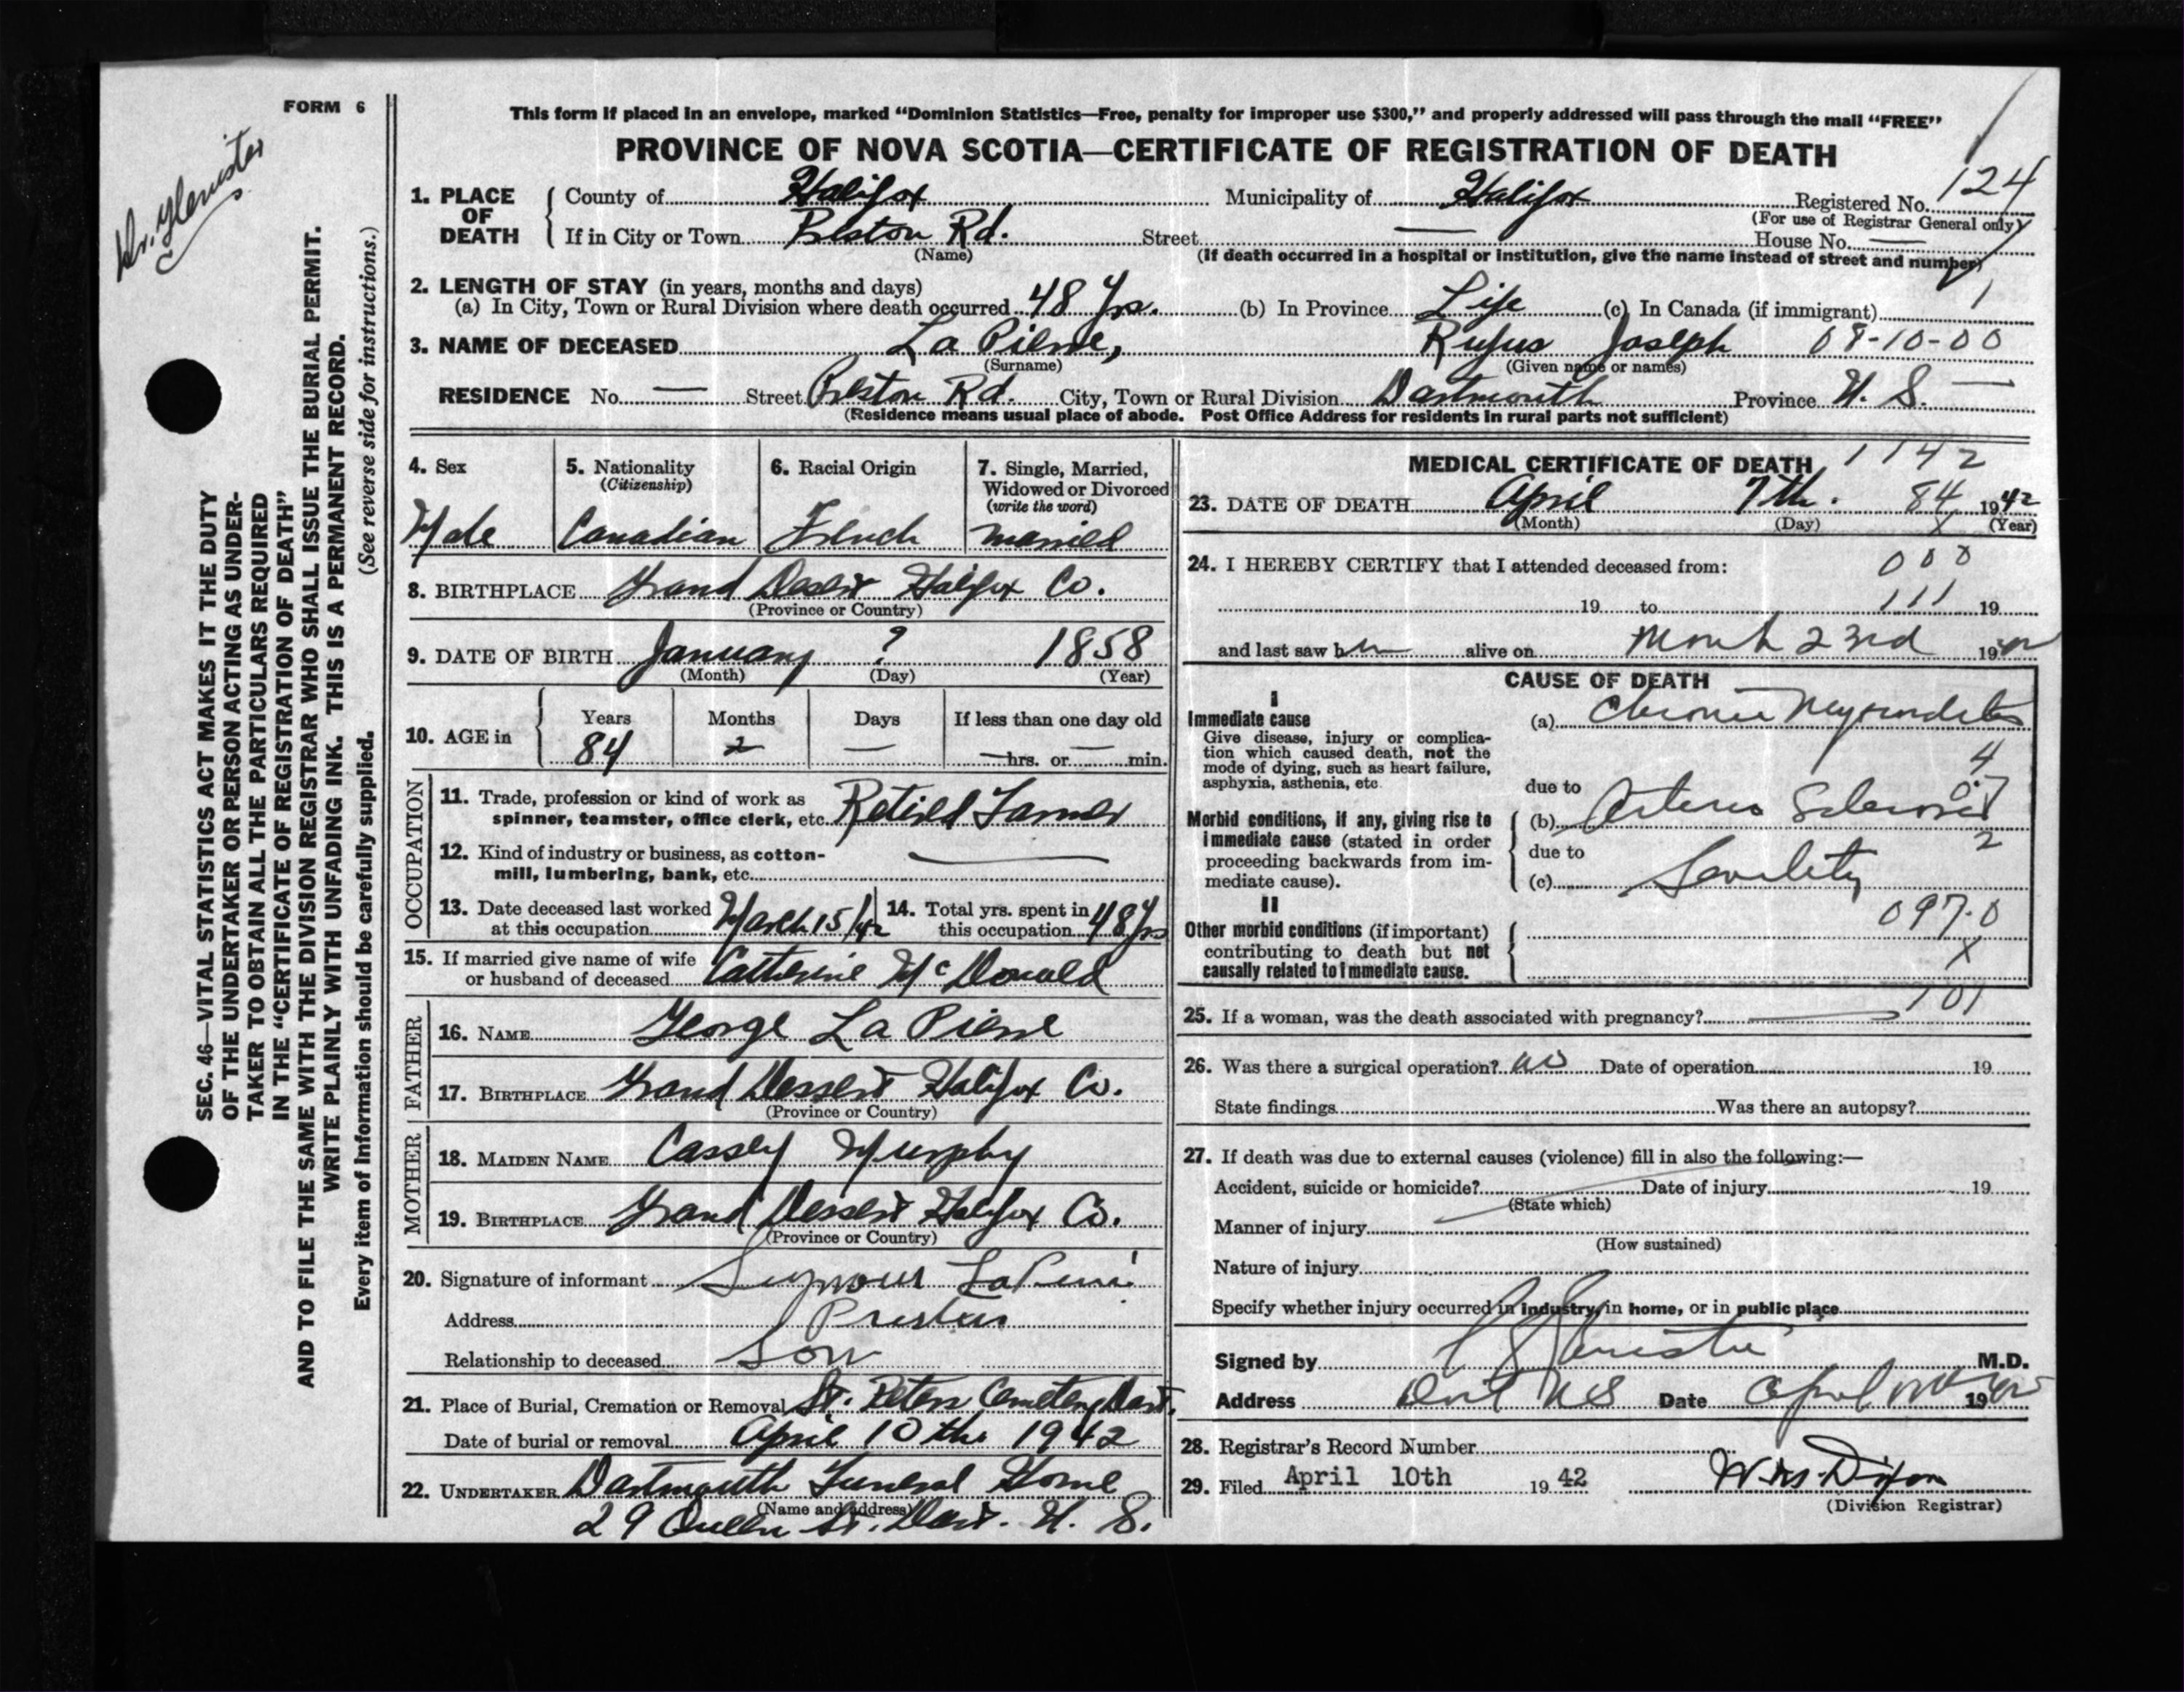 FORM 6
Dr. Glenister
This form if placed in an envelope, marked “Dominion Statistics—Free, penalty for improper use $300,” and properly addressed will pass through the mail “FREE”
PROVINCE OF NOVA SCOTIA—CERTIFICATE OF REGISTRATION OF DEATH
1. PLACE OF DEATH { County of Halifax Municipality of Halifax Registered No. 124
(For use of Registrar General only)
If in City or Town Preston Rd. Street — House No. —
(Name) (If death occurred in a hospital or institution, give the name instead of street and number)
2. LENGTH OF STAY (in years, months and days)
(a) In City, Town or Rural Division where death occurred 48 Yrs. (b) In Province Life (c) In Canada (if immigrant)
3. NAME OF DECEASED La Pierre, Rufus Joseph 08-10-00
(Surname) (Given name or names)
RESIDENCE No. — Street Preston Rd. City, Town or Rural Division Dartmouth Province N. S. —
(Residence means usual place of abode. Post Office Address for residents in rural parts not sufficient)
4. Sex 5. Nationality 6. Racial Origin 7. Single, Married,
(Citizenship) Widowed or Divorced
(write the word)
Male Canadian French Married
8. BIRTHPLACE Grand Desert Halifax Co.
(Province or Country)
9. DATE OF BIRTH January ? 1858
(Month) (Day) (Year)
10. AGE in { Years Months Days If less than one day old
84 2 — — hrs. or — min.
OCCUPATION
11. Trade, profession or kind of work as
spinner, teamster, office clerk, etc. Retired Farmer
12. Kind of industry or business, as cotton-
mill, lumbering, bank, etc. —
13. Date deceased last worked
at this occupation March 15/42
14. Total yrs. spent in
this occupation 48 Yrs
15. If married give name of wife
or husband of deceased Catherine McDonald
FATHER
16. NAME George La Pierre
17. BIRTHPLACE Grand Dessert Halifax Co.
(Province or Country)
MOTHER
18. MAIDEN NAME Cassey Murphy
19. BIRTHPLACE Grand Dessert Halifax Co.
(Province or Country)
20. Signature of informant Seymour LaPierre
Address Preston
Relationship to deceased Son
21. Place of Burial, Cremation or Removal St. Peters Cemetery Dart.
Date of burial or removal April 10th 1942
22. UNDERTAKER Dartmouth Funeral Home
(Name and address)
29 Queen St. Dart. N. S.
MEDICAL CERTIFICATE OF DEATH 1142
23. DATE OF DEATH April 7th. 84 1942
(Month) (Day) X (Year)
24. I HEREBY CERTIFY that I attended deceased from: 000
19 to 111 19
and last saw him alive on March 23rd 1942
CAUSE OF DEATH
I
Immediate cause
Give disease, injury or complica-
tion which caused death, not the
mode of dying, such as heart failure,
asphyxia, asthenia, etc.
(a) Chronic Myocarditis
4
due to
Morbid conditions, if any, giving rise to
immediate cause (stated in order
proceeding backwards from im-
mediate cause).
(b) Arterio Sclerosis
2
due to
(c) Senility
II
097.0
Other morbid conditions (if important)
contributing to death but not
causally related to immediate cause.
X
101
25. If a woman, was the death associated with pregnancy? —
26. Was there a surgical operation? no Date of operation 19
State findings Was there an autopsy?
27. If death was due to external causes (violence) fill in also the following:—
Accident, suicide or homicide? Date of injury 19
(State which)
Manner of injury
(How sustained)
Nature of injury
Specify whether injury occurred in industry, in home, or in public place
Signed by Glenister M.D.
Address Dart NS Date April 1942
28. Registrar's Record Number
29. Filed April 10th 1942 Dixon
(Division Registrar)
SEC. 46—VITAL STATISTICS ACT MAKES IT THE DUTY
OF THE UNDERTAKER OR PERSON ACTING AS UNDER-
TAKER TO OBTAIN ALL THE PARTICULARS REQUIRED
IN THE “CERTIFICATE OF REGISTRATION OF DEATH”
AND TO FILE THE SAME WITH THE DIVISION REGISTRAR WHO SHALL ISSUE THE BURIAL PERMIT.
WRITE PLAINLY WITH UNFADING INK. THIS IS A PERMANENT RECORD.
Every item of Information should be carefully supplied. (See reverse side for instructions.)